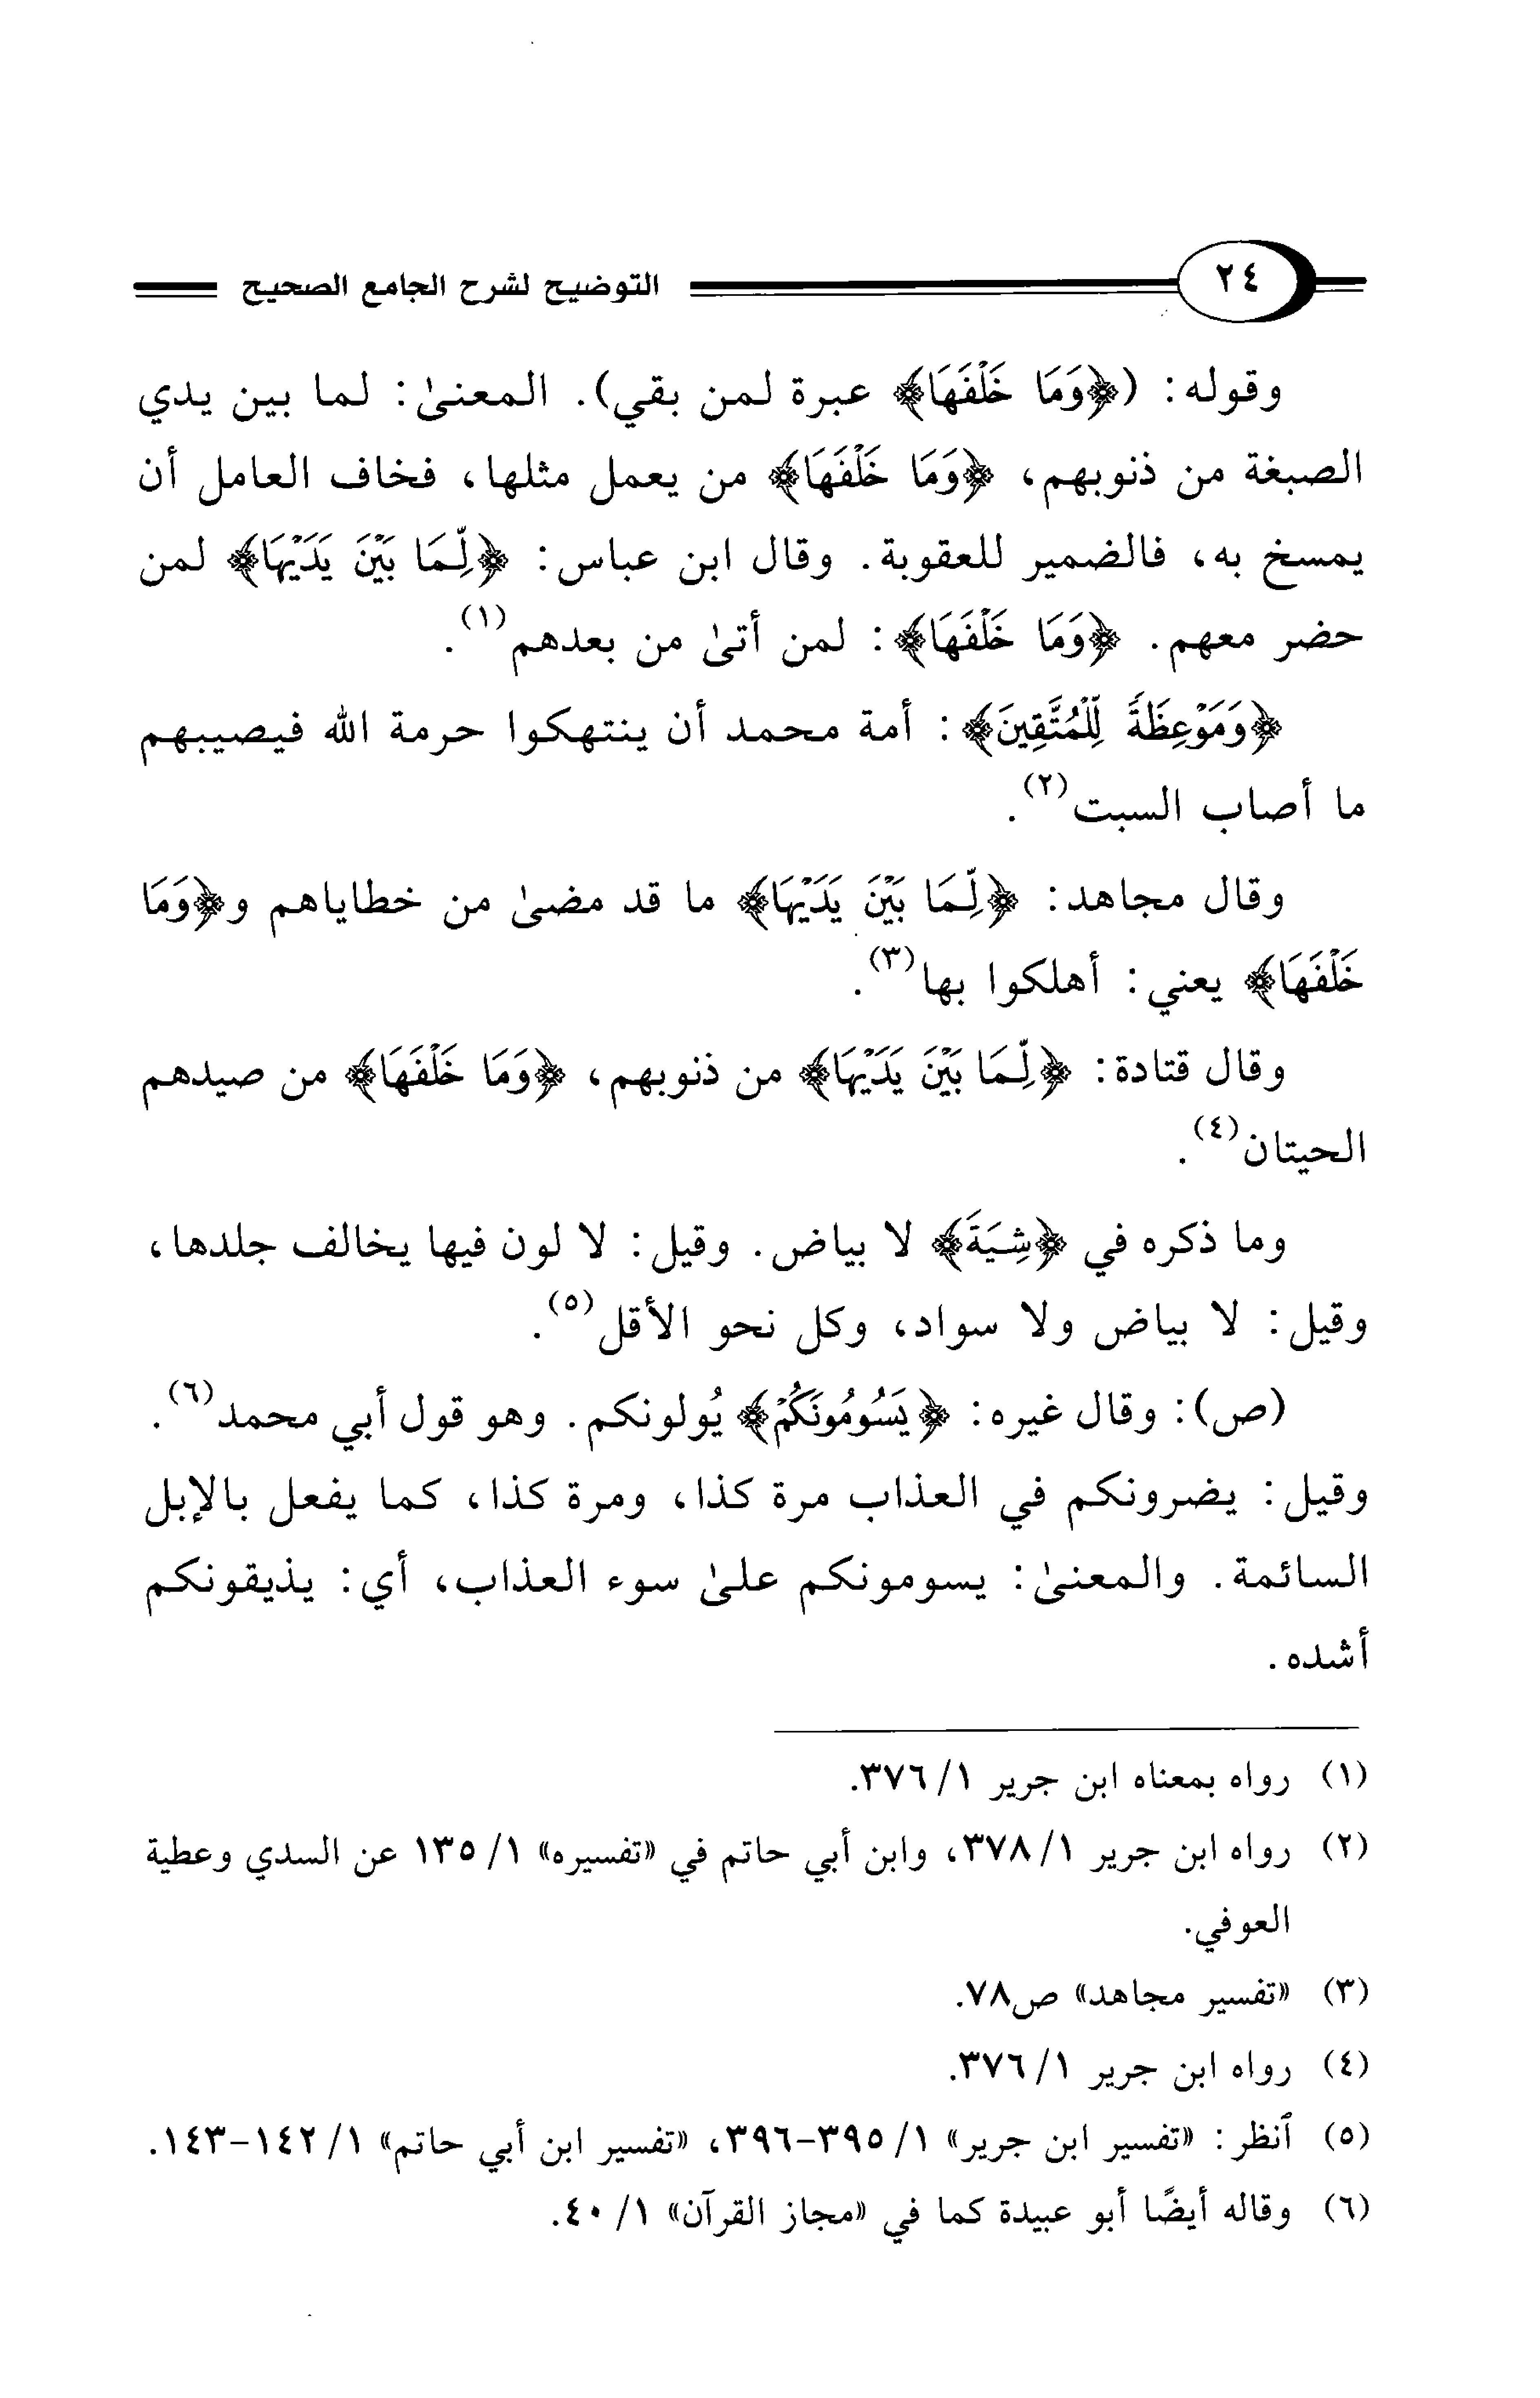 ٢٤ التوضيح لشرح الجامع الصحيح
وقوله: (﴿وَمَا خَلْفَهَا﴾ عبرة لمن بقي). المعنىٰ: لما بين يدي
الصبغة من ذنوبهم، ﴿وَمَا خَلْفَهَا﴾ من يعمل مثلها، فخاف العامل أن
يمسخ به، فالضمير للعقوبة. وقال ابن عباس: ﴿لِّمَا بَيْنَ يَدَيْهَا﴾ لمن
حضر معهم. ﴿وَمَا خَلْفَهَا﴾: لمن أتىٰ من بعدهم(١).
﴿وَمَوْعِظَةً لِّلْمُتَّقِينَ﴾: أمة محمد أن ينتهكوا حرمة الله فيصيبهم
ما أصاب السبت(٢).
وقال مجاهد: ﴿لِّمَا بَيْنَ يَدَيْهَا﴾ ما قد مضىٰ من خطاياهم و﴿وَمَا
خَلْفَهَا﴾ يعني: أهلكوا بها(٣).
وقال قتادة: ﴿لِّمَا بَيْنَ يَدَيْهَا﴾ من ذنوبهم، ﴿وَمَا خَلْفَهَا﴾ من صيدهم
الحيتان(٤).
وما ذكره في ﴿شِيَةَ﴾ لا بياض. وقيل: لا لون فيها يخالف جلدها،
وقيل: لا بياض ولا سواد، وكل نحو الأقل(٥).
(ص): وقال غيره: ﴿يَسُومُونَكُمْ﴾ يُولونكم. وهو قول أبي محمد(٦).
وقيل: يضرونكم في العذاب مرة كذا، ومرة كذا، كما يفعل بالإبل
السائمة. والمعنىٰ: يسومونكم علىٰ سوء العذاب، أي: يذيقونكم
أشده.
(١) رواه بمعناه ابن جرير ١/ ٣٧٦.
(٢) رواه ابن جرير ١/ ٣٧٨، وابن أبي حاتم في «تفسيره» ١/ ١٣٥ عن السدي وعطية
العوفي.
(٣) «تفسير مجاهد» ص٧٨.
(٤) رواه ابن جرير ١/ ٣٧٦.
(٥) ٱنظر: «تفسير ابن جرير» ١/ ٣٩٥-٣٩٦، «تفسير ابن أبي حاتم» ١/ ١٤٢-١٤٣.
(٦) وقاله أيضًا أبو عبيدة كما في «مجاز القرآن» ١/ ٤٠.